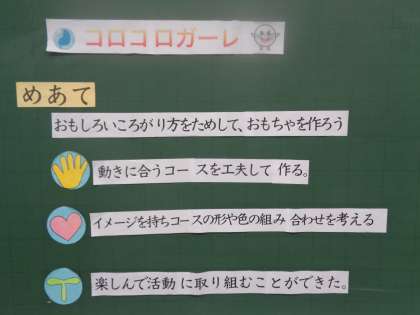 コロコロガーレ
めあて
おもしろいころがり方をためして、おもちゃを作ろう
動きに合うコースを工夫して作る。
イメージを持ちコースの形や色の組み合わせを考える
楽しんで活動に取り組むことができた。